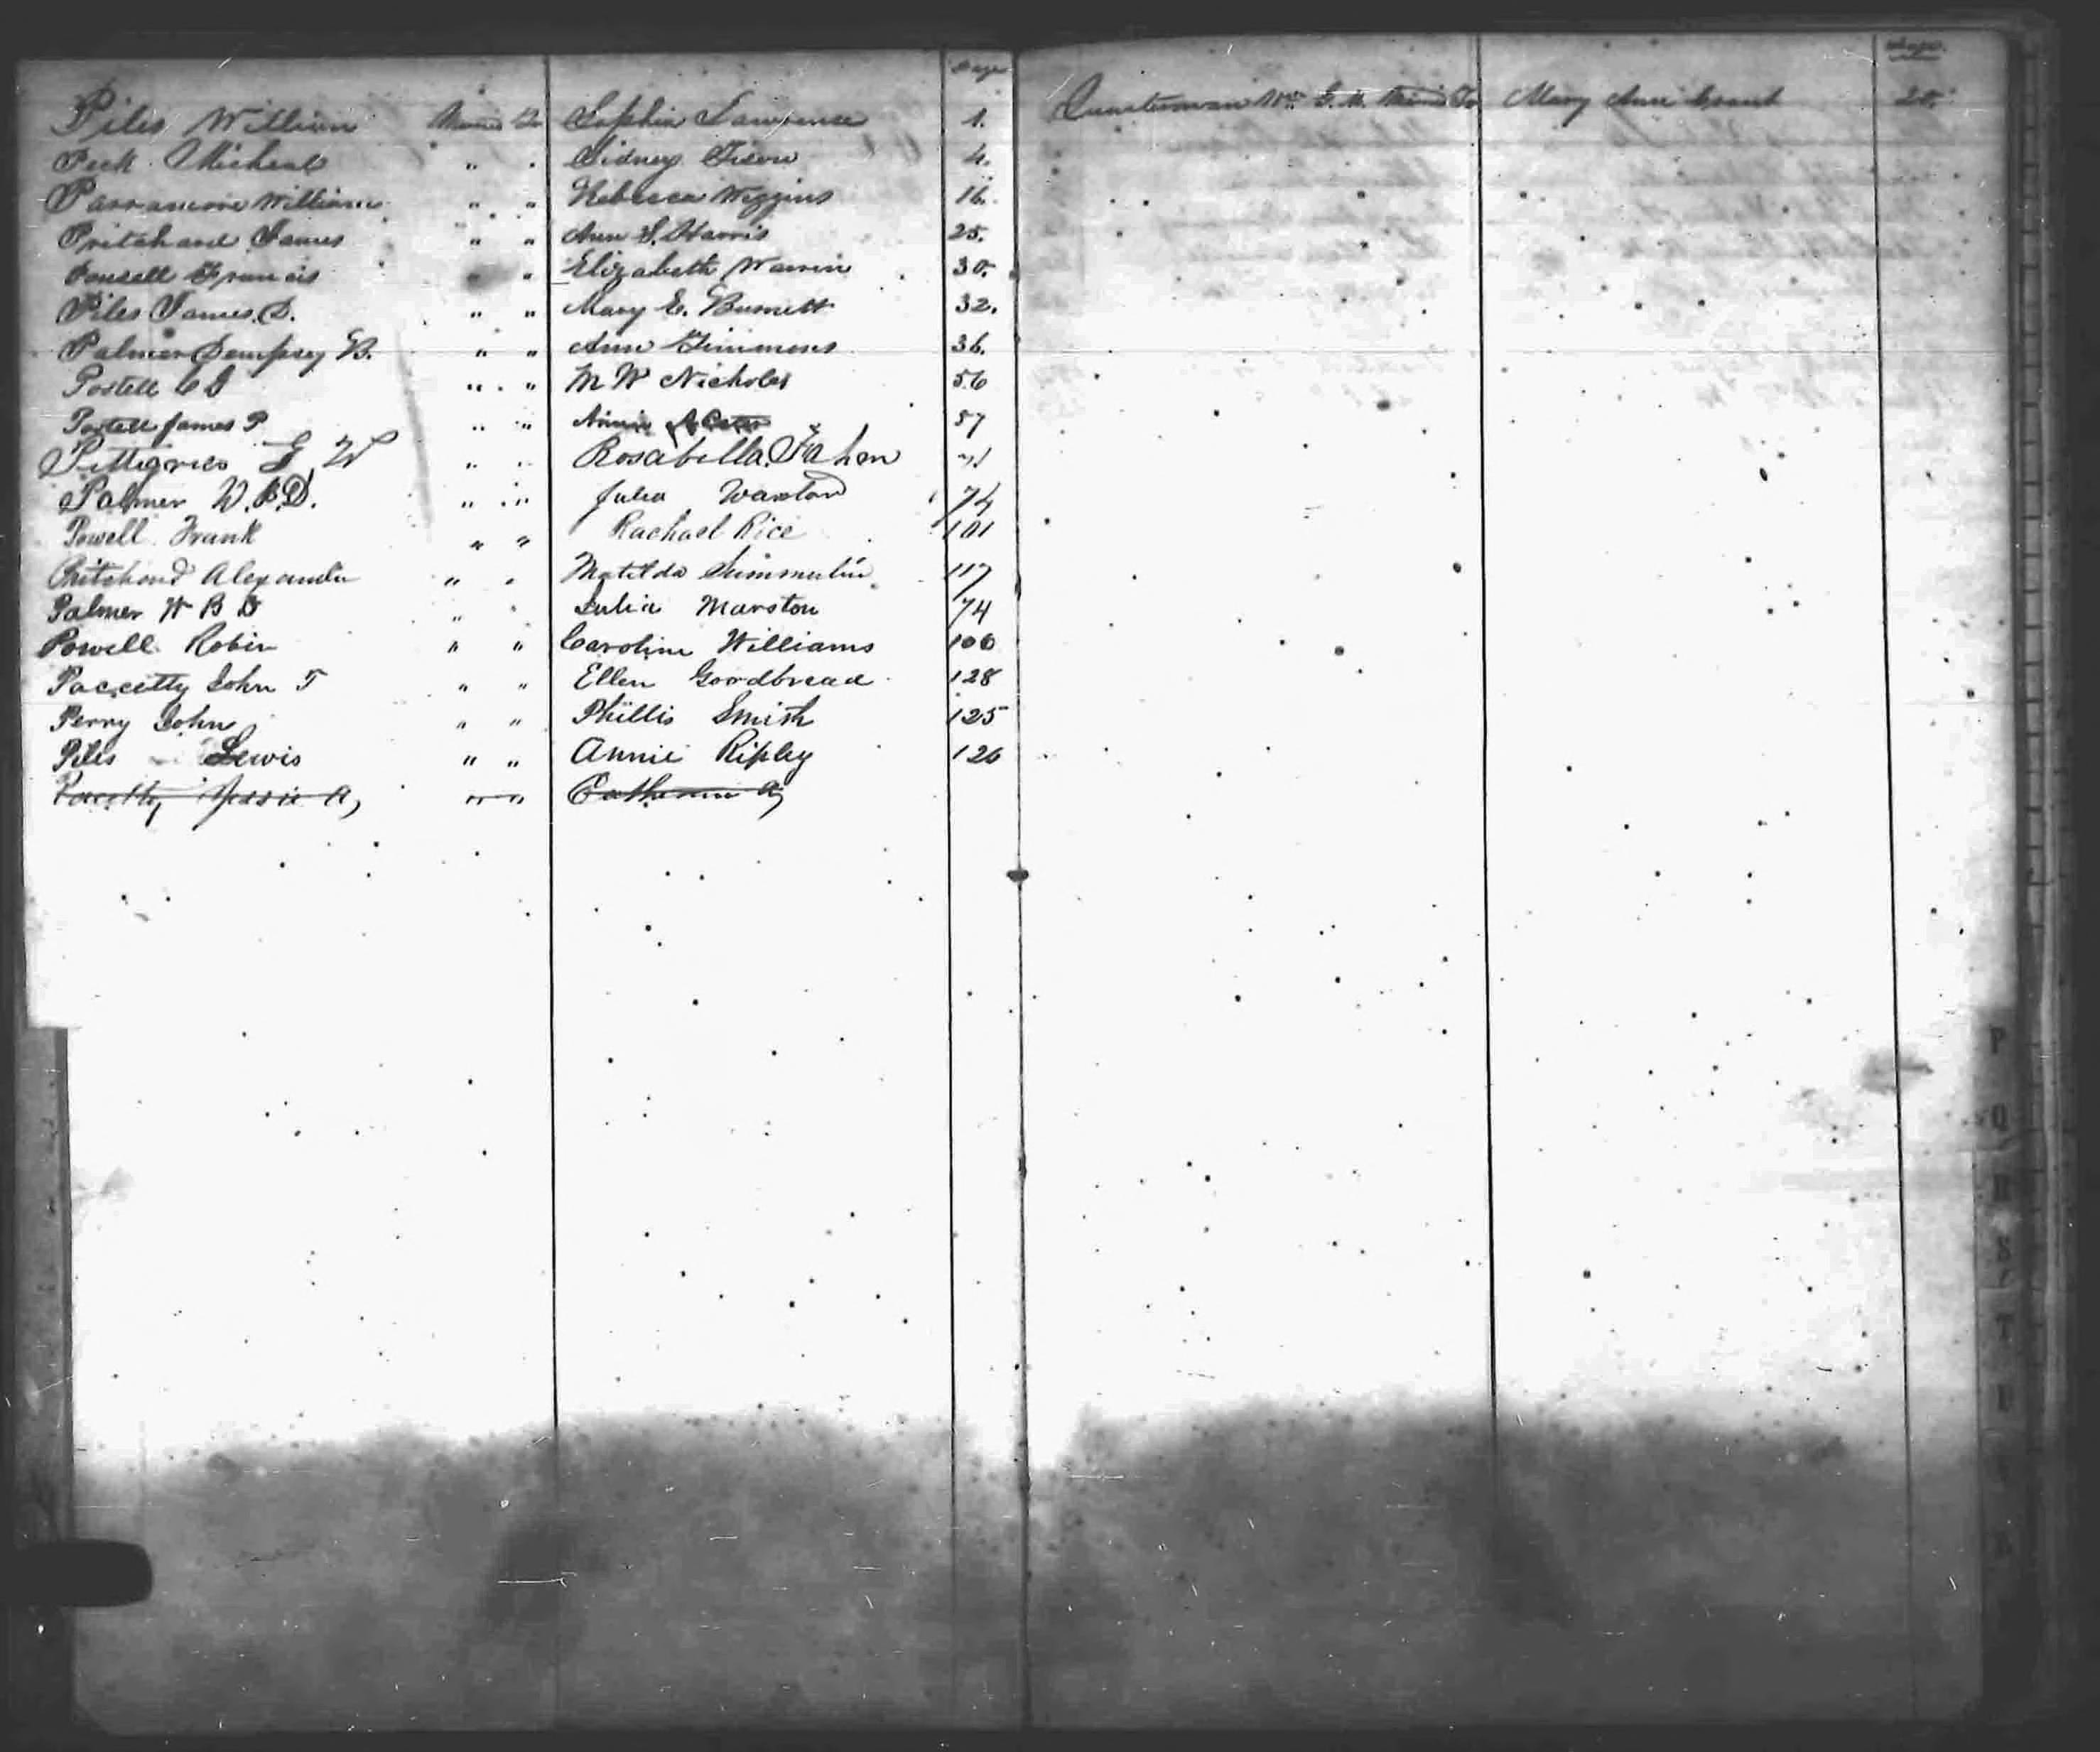 Page
Piles William Married To Sophia Lawrence 1.
Peck Micheal " " Sidney Tison 4.
Parramore William " " Rebecca Wiggins 16.
Pritchard James " " Ann S. Harris 25.
Ponsell Francis " " Elizabeth Warrin 30.
Piles James. D. " " Mary E. Burnett 32.
Palmer Dempsey B. " " Ann Timmons 36.
Postell C J " " M W Nicholes 56
Postell James P " " Annie 57
Pettigrew " " Rosabella Fahen
Palmer W. B. D. " " Julia 74
Powell Frank " " Rachael Rice 101
Pritchard Alexander " " Matilda Summerlin 117
Palmer W B D " " Julia Marston 74
Powell Robin " " Caroline Williams 106
Paccetty John T " " Ellen Goodbread 128
Perry John " " Phillis Smith 125
Piles Lewis " " Annie Ripley 126
Paccetty Jessie A, " " Catherine A,
Page.
Quarterman Wm Married To Mary Ann Grant 20.
P
Q
R
S
T